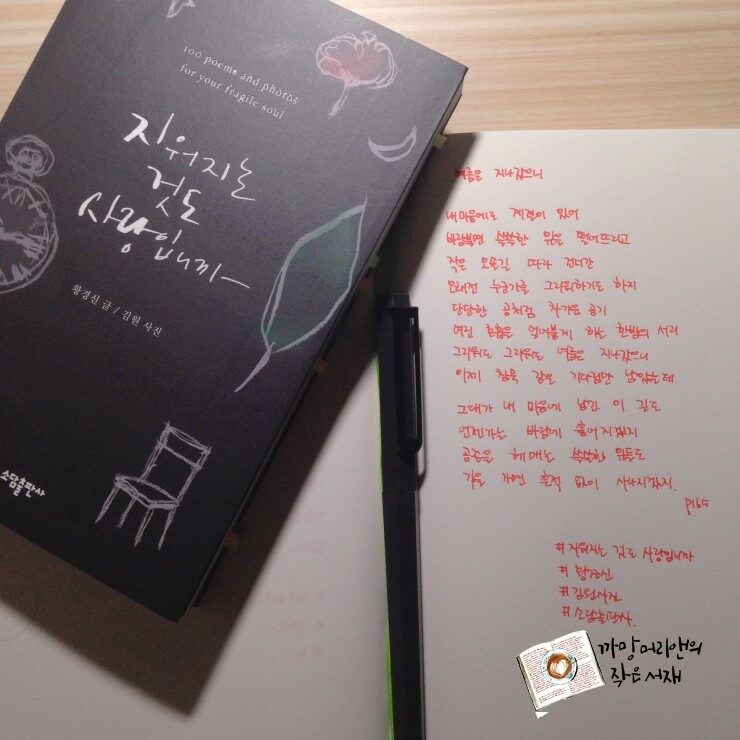 100 poems and photos
for your fragile soul
지워지는
것도
사랑입니까
황경신 글 / 김원 사진
소담출판사
여름은 지나갔으니
내 마음에도 계절이 있어
바람불면 쓸쓸한 잎을 떨어뜨리고
작은 오솔길 따라 건너간
오래전 누군가를 그리워하기도 하지
당당한 공처럼 차가운 공기
여린 호흡을 얼어붙게 하는 한밤의 서리
그리워도 그리워도 여름은 지나갔으니
이제 침묵 같은 기다림만 남았는데
그대가 내 마음에 남긴 이 길도
언젠가는 바람에 흩어지겠지
공중을 헤매는 쓸쓸한 잎들도
가을 가면 흔적 없이 사라지겠지.
p165
#지워지는 것도 사랑입니까
#황경신
#김원사진
#소담출판사.
까망머리앤의
작은서재